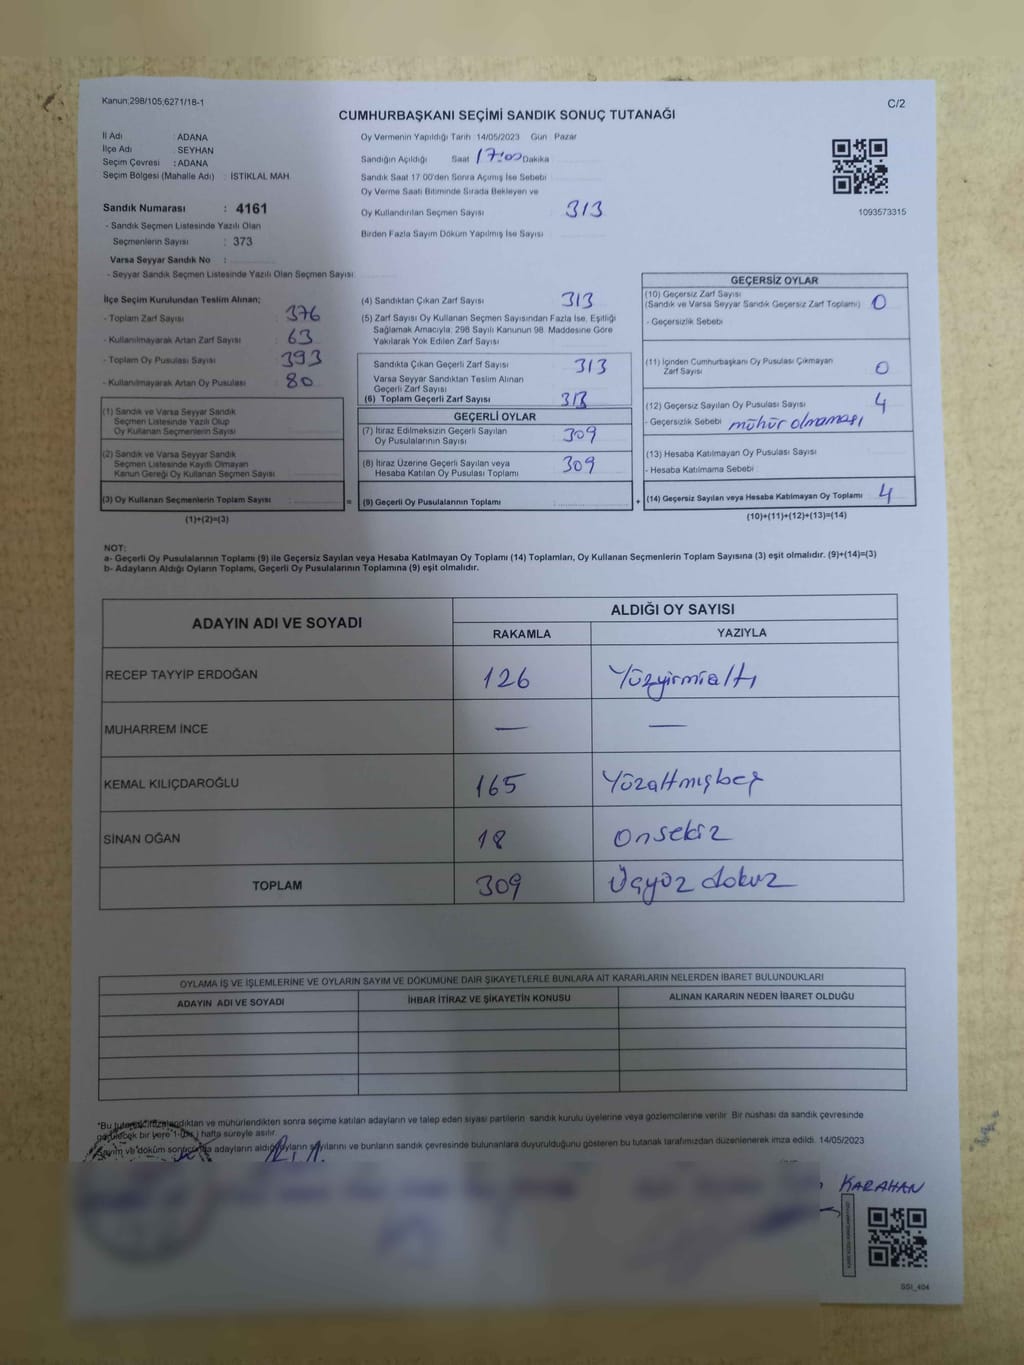 Kanun;298/105;6271/18-1
C/2
CUMHURBAŞKANI SEÇİMİ SANDIK SONUÇ TUTANAĞI
İl Adı : ADANA
İlçe Adı : SEYHAN
Seçim Çevresi : ADANA
Seçim Bölgesi (Mahalle Adı) : İSTİKLAL MAH.
Oy Vermenin Yapıldığı Tarih 14/05/2023 Gün Pazar
Sandığın Açıldığı Saat 17:00 Dakika
Sandık Saat 17.00'den Sonra Açımış İse Sebebi
Oy Verme Saati Bitiminde Sırada Bekleyen ve
Oy Kullandırılan Seçmen Sayısı 313
Birden Fazla Sayım Döküm Yapılmış İse Sayısı
1093573315
Sandık Numarası : 4161
- Sandık Seçmen Listesinde Yazılı Olan
Seçmenlerin Sayısı : 373
Varsa Seyyar Sandık No :
- Seyyar Sandık Seçmen Listesinde Yazılı Olan Seçmen Sayısı:
İlçe Seçim Kurulundan Teslim Alınan;
- Toplam Zarf Sayısı : 376
- Kullanılmayarak Artan Zarf Sayısı : 63
- Toplam Oy Pusulası Sayısı : 393
- Kullanılmayarak Artan Oy Pusulası : 80
(1) Sandık ve Varsa Seyyar Sandık
Seçmen Listesinde Yazılı Olup
Oy Kullanan Seçmenlerin Sayısı
(2) Sandık ve Varsa Seyyar Sandık
Seçmen Listesinde Kayıtlı Olmayan
Kanun Gereği Oy Kullanan Seçmen Sayısı
(3) Oy Kullanan Seçmenlerin Toplam Sayısı =
(1)+(2)=(3)
(4) Sandıktan Çıkan Zarf Sayısı 313
(5) Zarf Sayısı Oy Kullanan Seçmen Sayısından Fazla İse, Eşitliği
Sağlamak Amacıyla; 298 Sayılı Kanunun 98. Maddesine Göre
Yakılarak Yok Edilen Zarf Sayısı
Sandıkta Çıkan Geçerli Zarf Sayısı 313
Varsa Seyyar Sandıktan Teslim Alınan
Geçerli Zarf Sayısı
(6) Toplam Geçerli Zarf Sayısı 313
GEÇERLİ OYLAR
(7) İtiraz Edilmeksizin Geçerli Sayılan
Oy Pusulalarının Sayısı 309
(8) İtiraz Üzerine Geçerli Sayılan veya
Hesaba Katılan Oy Pusulası Toplamı 309
(9) Geçerli Oy Pusulalarının Toplamı +
GEÇERSİZ OYLAR
(10) Geçersiz Zarf Sayısı
(Sandık ve Varsa Seyyar Sandık Geçersiz Zarf Toplamı) 0
- Geçersizlik Sebebi
(11) İçinden Cumhurbaşkanı Oy Pusulası Çıkmayan
Zarf Sayısı 0
(12) Geçersiz Sayılan Oy Pusulası Sayısı 4
- Geçersizlik Sebebi mühür olmaması
(13) Hesaba Katılmayan Oy Pusulası Sayısı
- Hesaba Katılmama Sebebi
(14) Geçersiz Sayılan veya Hesaba Katılmayan Oy Toplamı 4
(10)+(11)+(12)+(13)=(14)
NOT:
a- Geçerli Oy Pusulalarının Toplamı (9) ile Geçersiz Sayılan veya Hesaba Katılmayan Oy Toplamı (14) Toplamları, Oy Kullanan Seçmenlerin Toplam Sayısına (3) eşit olmalıdır. (9)+(14)=(3)
b- Adayların Aldığı Oyların Toplamı, Geçerli Oy Pusulalarının Toplamına (9) eşit olmalıdır.
ADAYIN ADI VE SOYADI
ALDIĞI OY SAYISI
RAKAMLA YAZIYLA
RECEP TAYYİP ERDOĞAN 126 Yüzyirmialtı
MUHARREM İNCE — —
KEMAL KILIÇDAROĞLU 165 Yüzaltmışbeş
SİNAN OĞAN 18 onsekiz
TOPLAM 309 Üçyüz dokuz
OYLAMA İŞ VE İŞLEMLERİNE VE OYLARIN SAYIM VE DÖKÜMÜNE DAİR ŞİKAYETLERLE BUNLARA AİT KARARLARIN NELERDEN İBARET BULUNDUKLARI
ADAYIN ADI VE SOYADI İHBAR İTİRAZ VE ŞİKAYETİN KONUSU ALINAN KARARIN NEDEN İBARET OLDUĞU
*Bu tutanak imzalandıktan ve mühürlendikten sonra seçime katılan adayların ve talep eden siyasi partilerin sandık kurulu üyelerine veya gözlemcilerine verilir. Bir nüshası da sandık çevresinde
bir yere 1 hafta süreyle asılır.
Sayım ve döküm adayların aldığı oyların sayılarını ve bunların sandık çevresinde bulunanlara duyurulduğunu gösteren bu tutanak tarafımızdan düzenlenerek imza edildi. 14/05/2023
KARAHAN
SSI_404